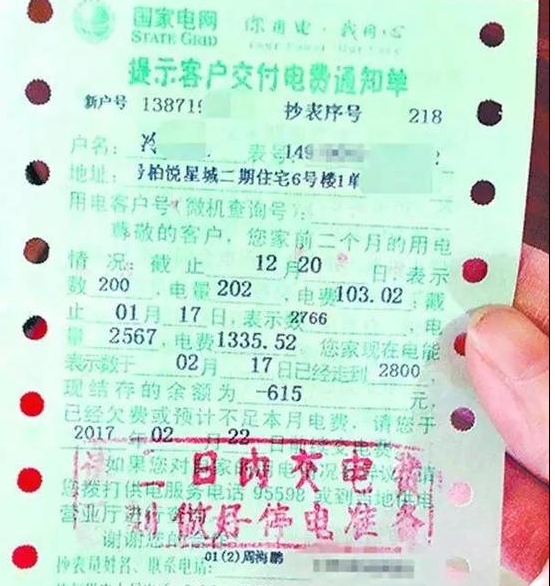 国家电网 你用电·我用心
STATE GRID Your Power Our Care
提示客户交付电费通知单
新户号 13871 抄表序号 218
户名: 表号:149
地址: 号柏悦星城二期住宅6号楼1单
用电客户号(微机查询号):
尊敬的客户,您家前二个月的用电
情况:截止 12月20日,表示
数 200 ,电量 202 ,电费 103.02 ;截
止 01月 17日,表示数 2766 ,电
量 2567 ,电费 1335.52 ,您家现在电能
表示数于 02月 17日已经走到 2800 ,
现结存的余额为 -615 元,
已经欠费或预计不足本月电费,请您于
2017 年 02 月 22 日前续交电费
如果您对国家的用电情况 议,请
您拨打供电服务电话 95598 或到当地供电
营业厅进行
谢谢您的
二日内交电费
做好停电准备
01(2)周海鹏
抄表员姓名、联系电话: